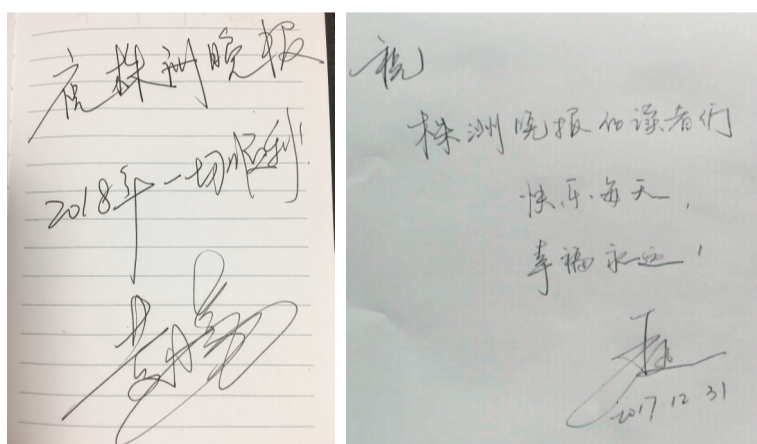 祝株洲晚报
2018年一切顺利!
祝
株洲晚报的读者们
快乐每天,
幸福永远!
2017 12 31